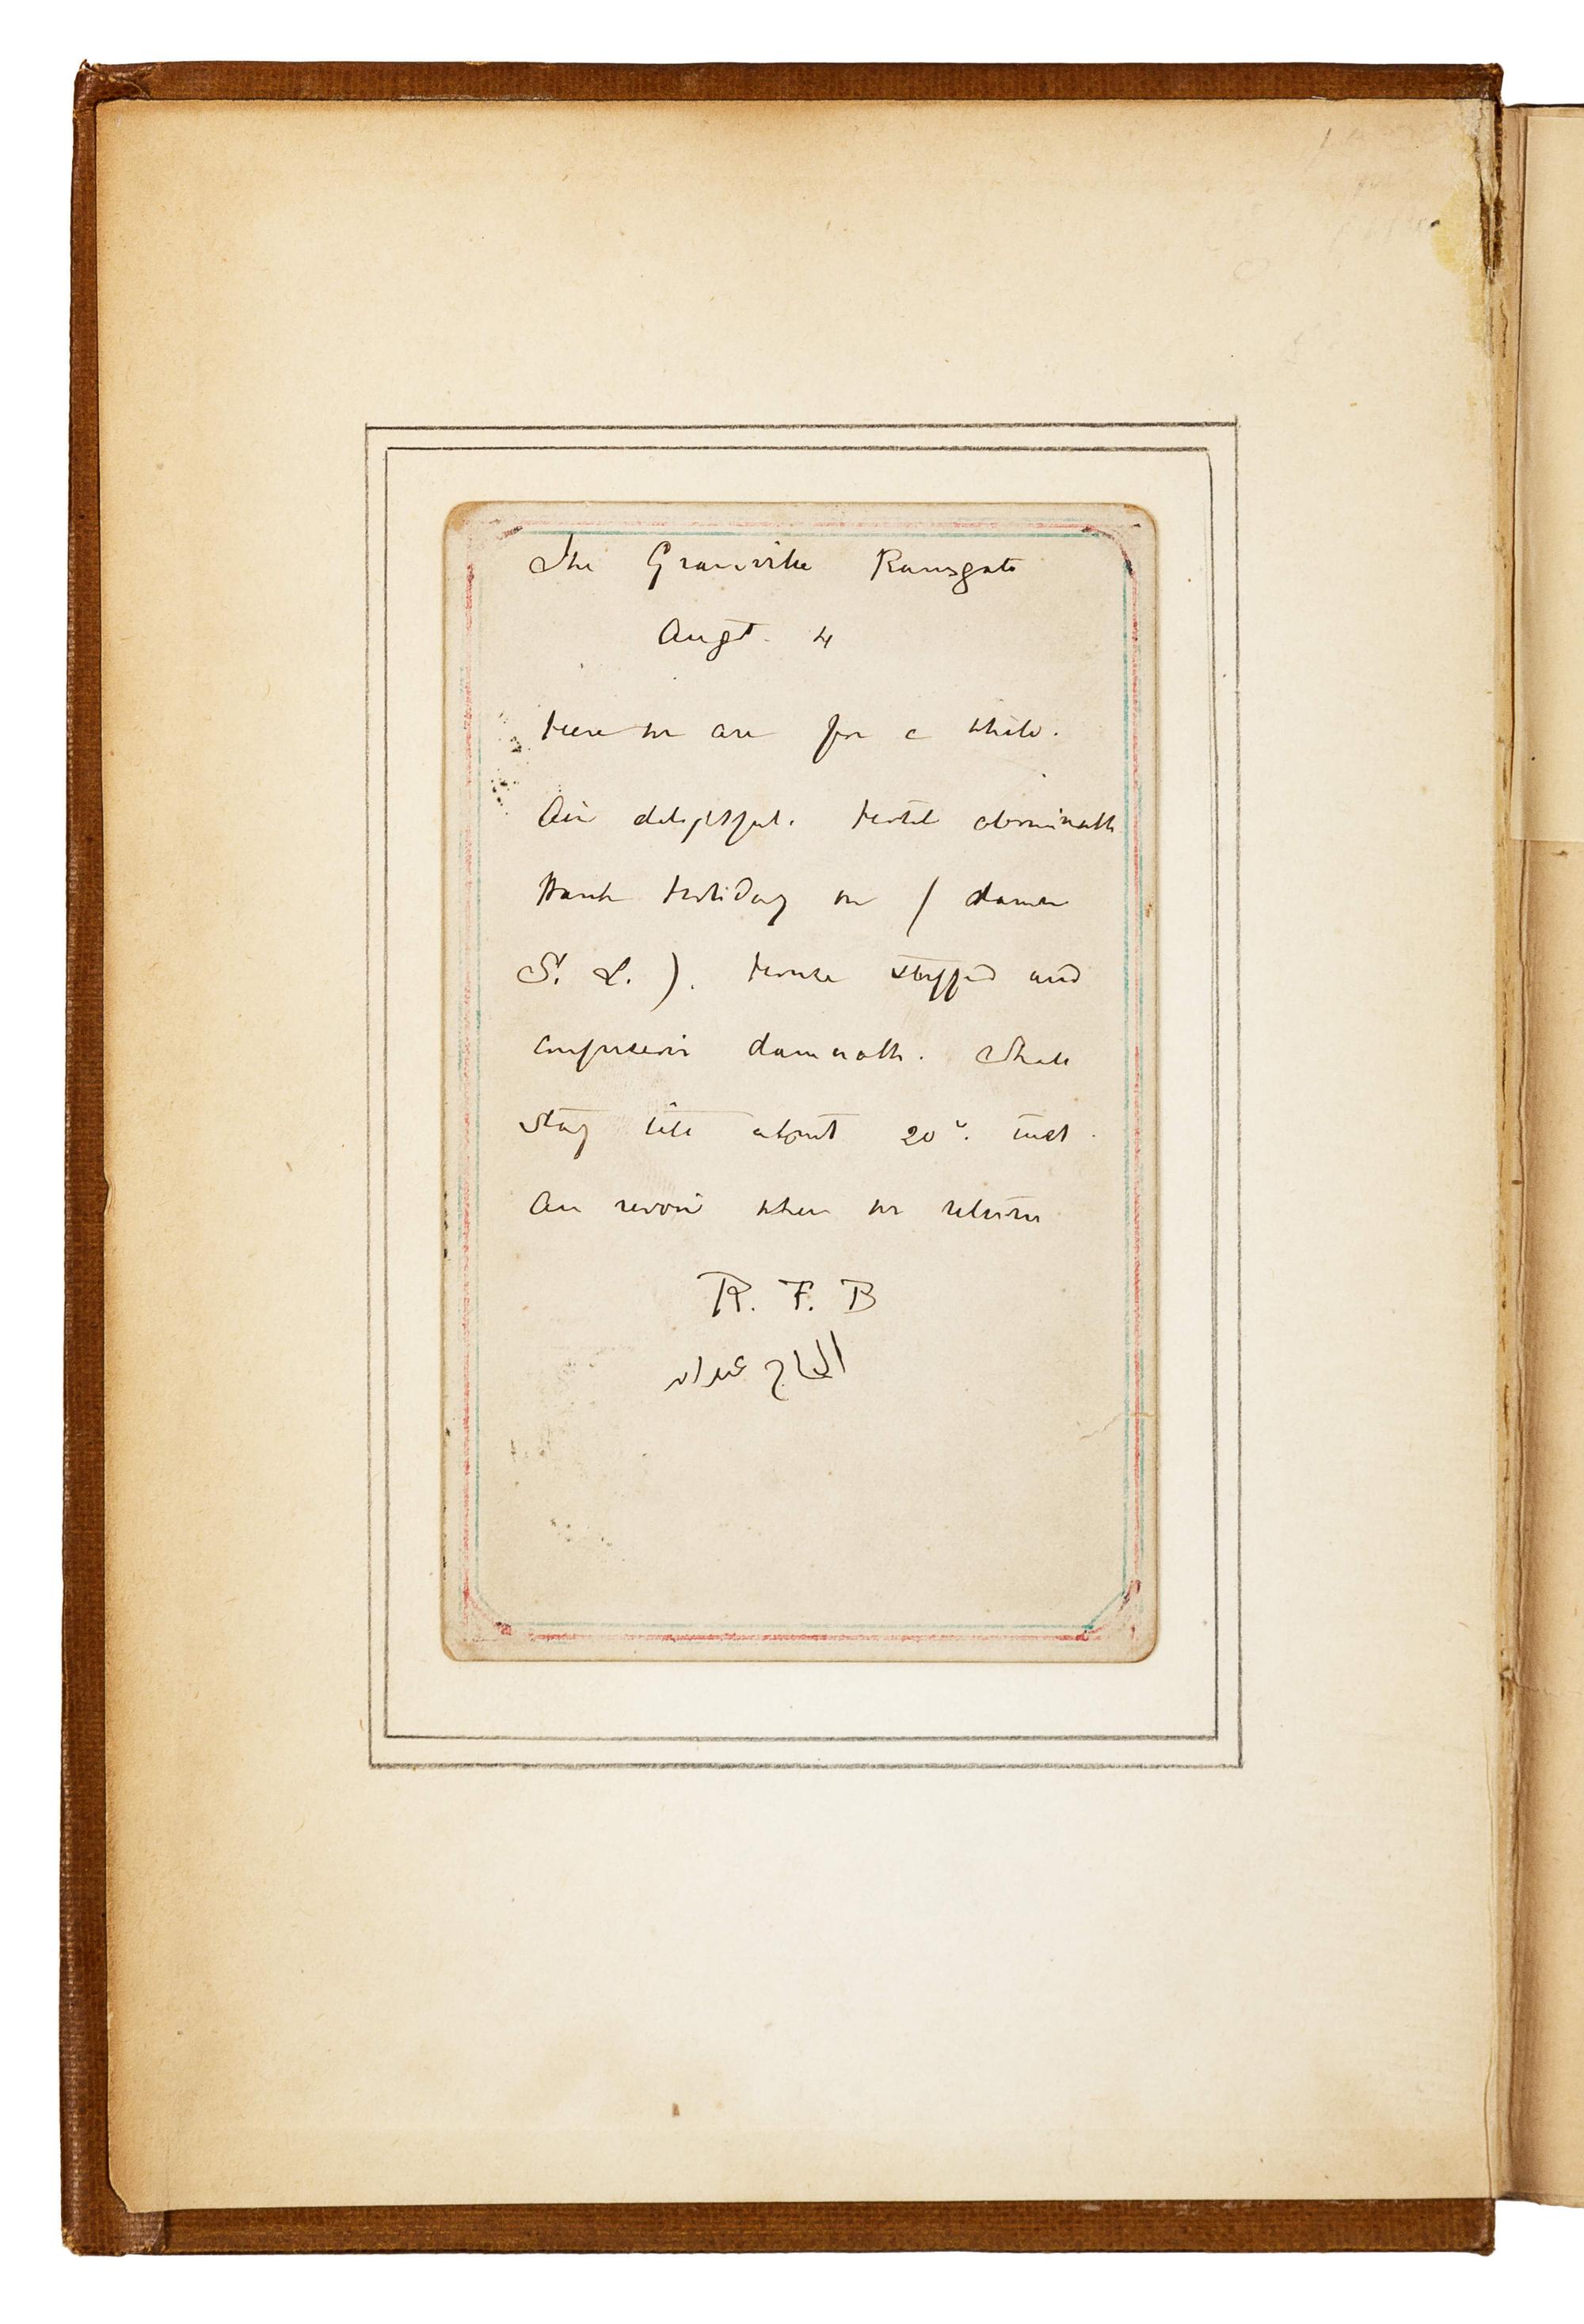 The Granville Ramsgate
Augt. 4
Here we are for a while.
Air delightful. Hotel abominable
Bank Holiday on (damn
S. L.). House stuffed and
confusion damnable. Shall
stay till about 20th. inst.
Au revoir when we return
R. F. B
الحاج عبدالله